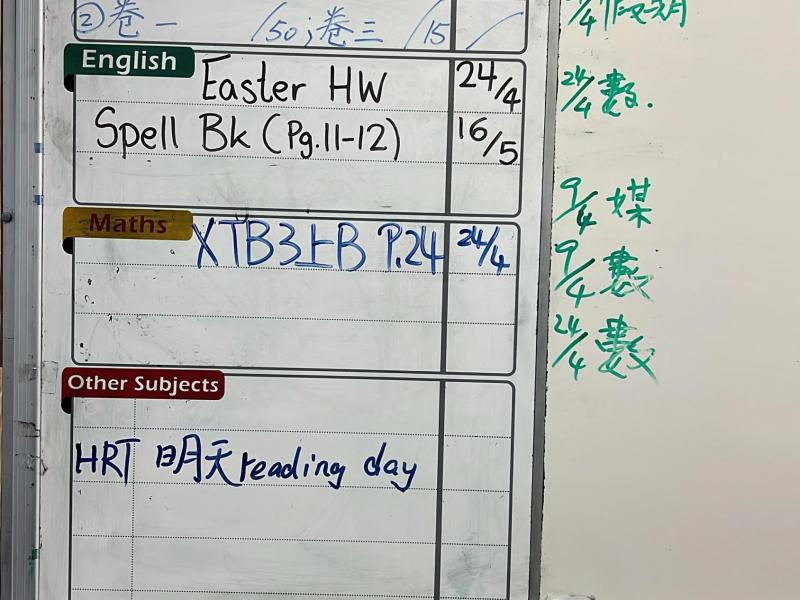 ② 卷一 /50；卷三 /15
English
Easter HW 24/4
Spell Bk (Pg.11-12) 16/5
Maths
XTB3上B P.24 24/4
Other Subjects
HRT 明天reading day
/4 假期
24/4 數.
9/4 媒
9/4 數
24/4 數